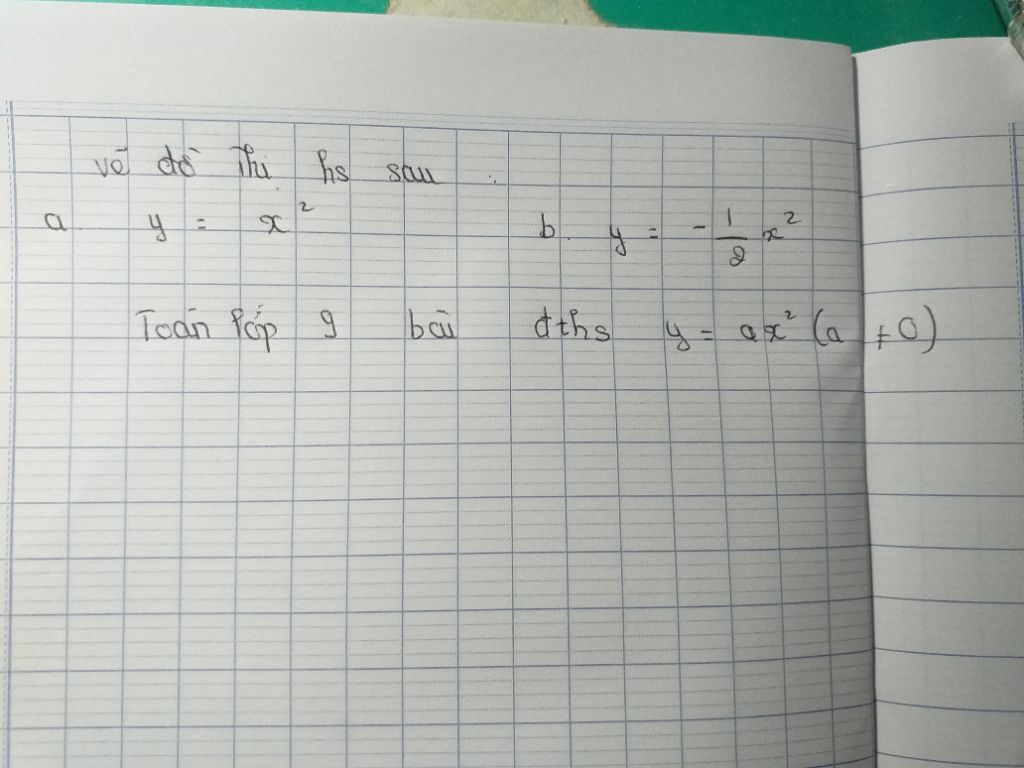 vẽ đồ thị hs sau :
a y = x² b. y = -1/2 x²
Toán lớp 9 bài đths y = ax² (a ≠ 0)